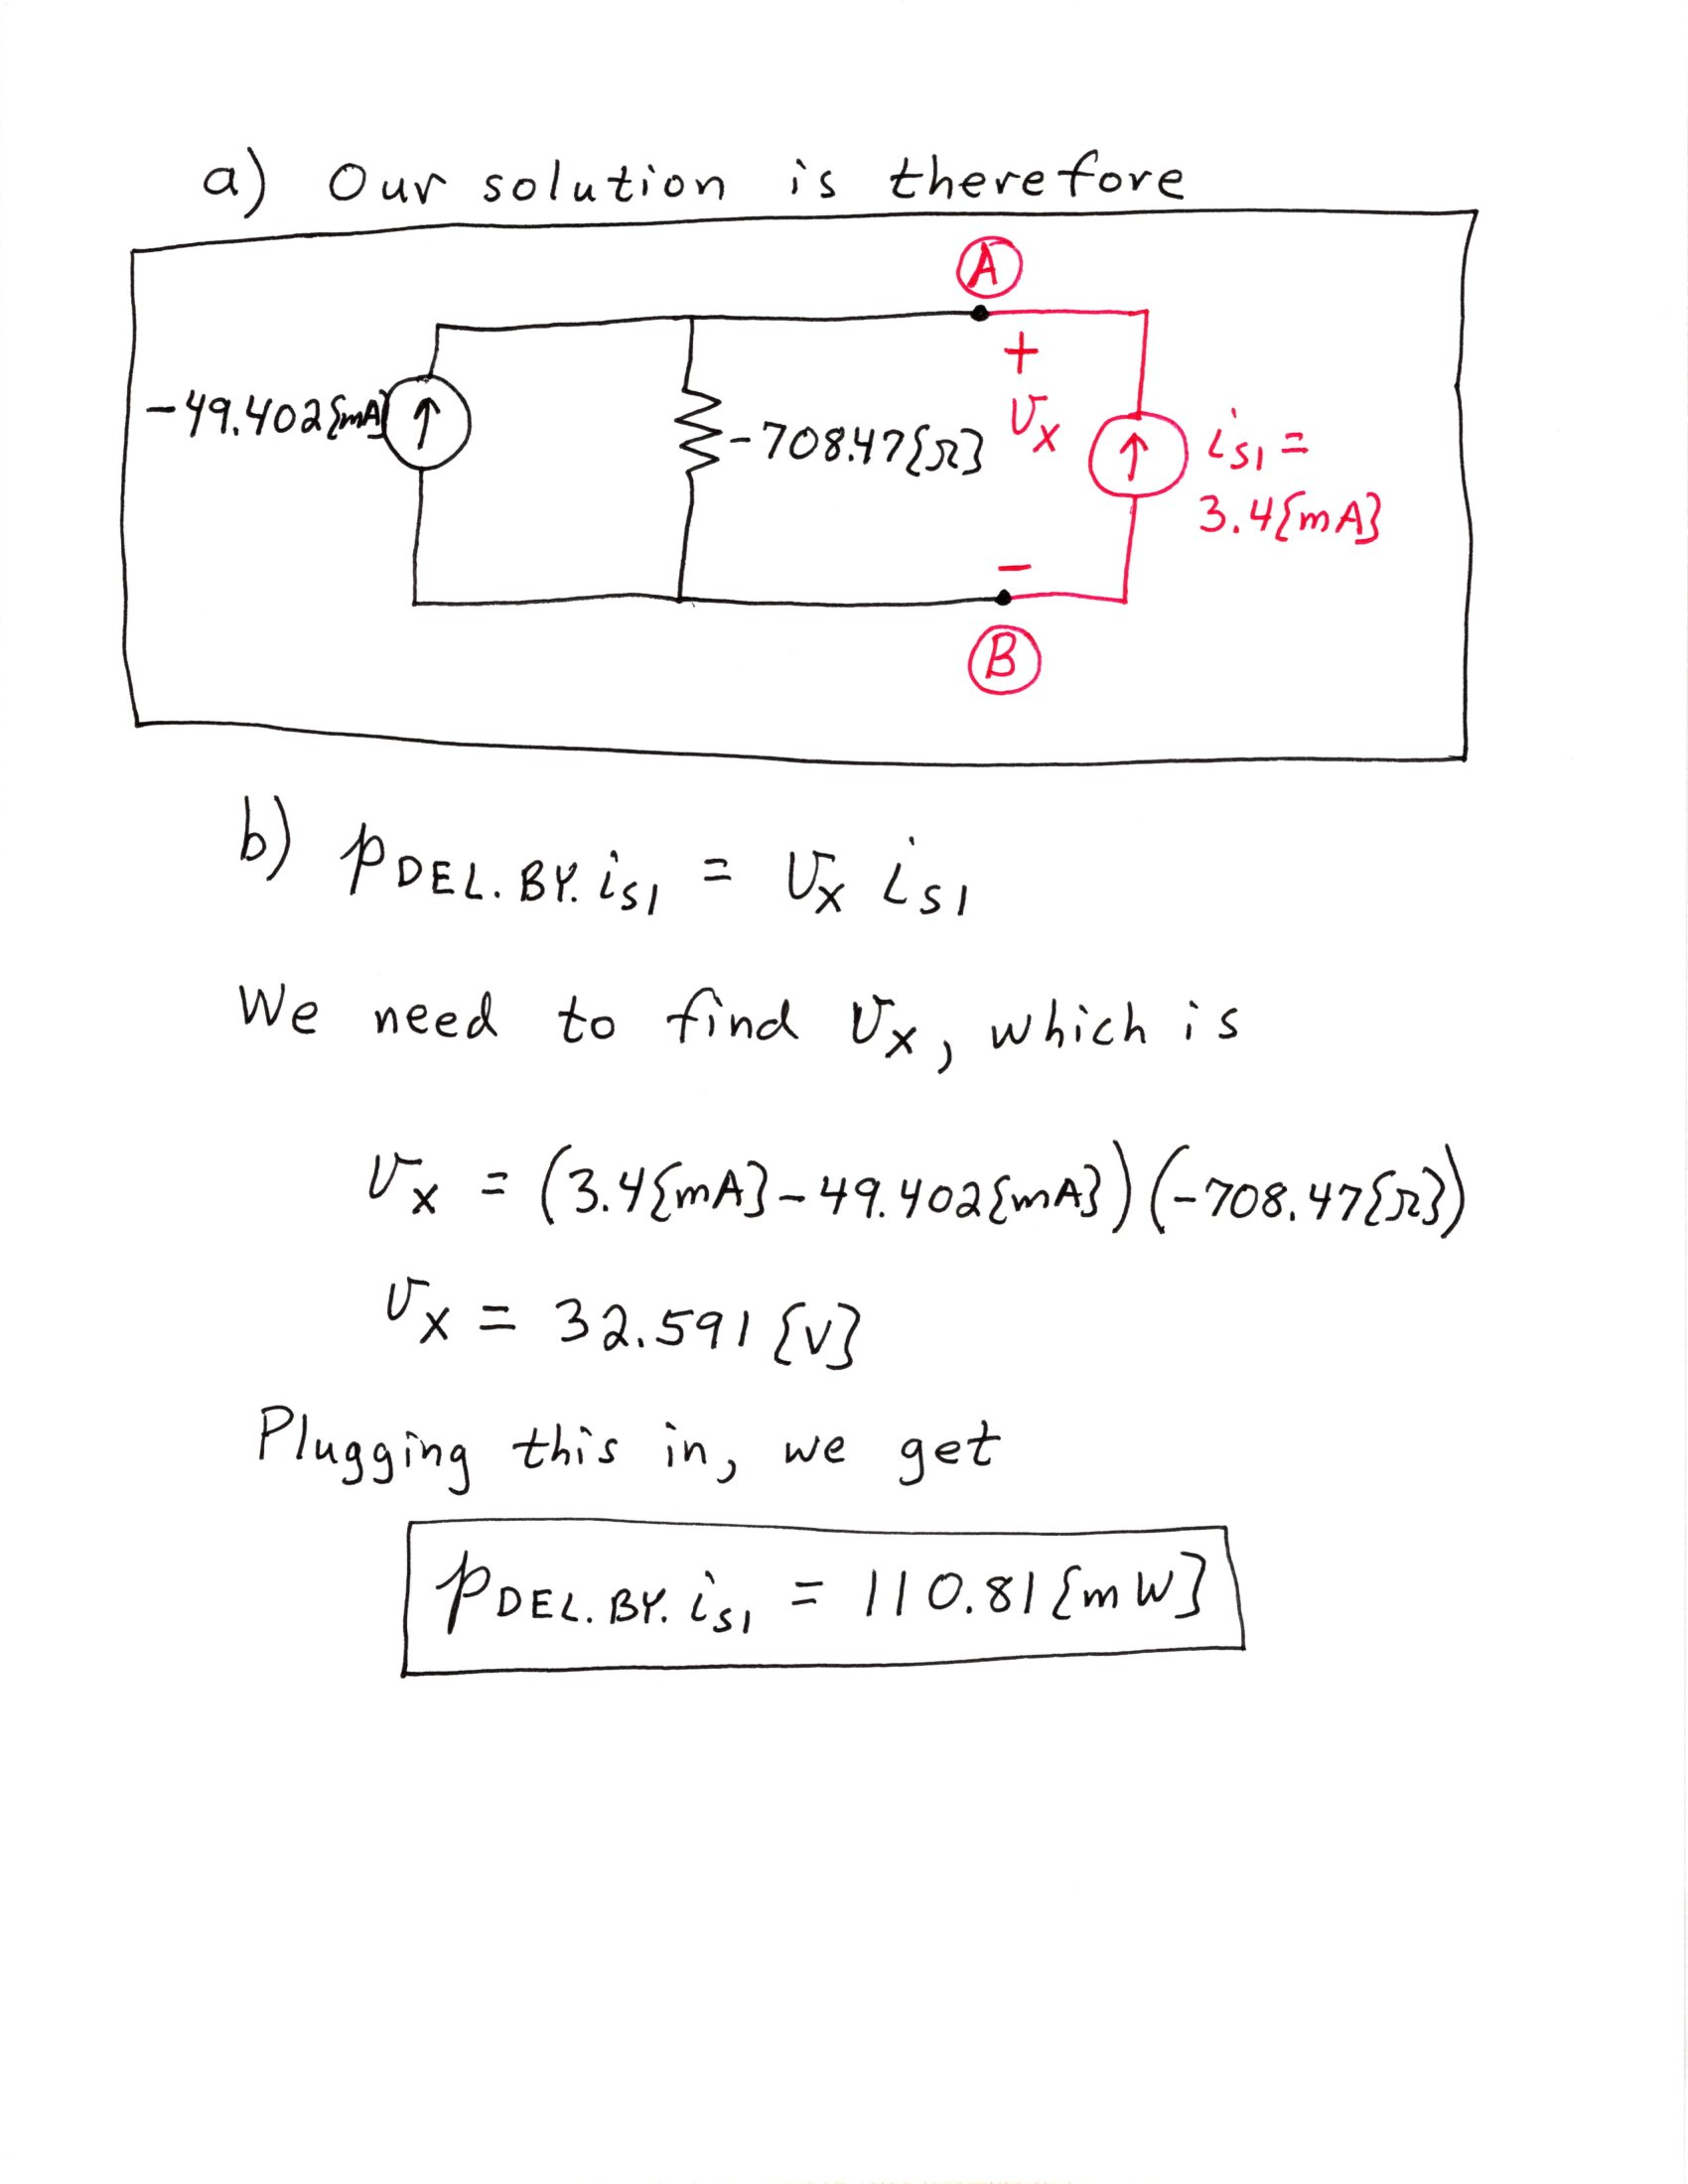 a) Our solution is therefore
A
-49.402{mA}
-708.47{Ω}
+
vx
-
iS1 =
3.4{mA}
B
b) PDEL.BY.iS1 = vx iS1
We need to find vx, which is
vx = (3.4{mA}-49.402{mA})(-708.47{Ω})
vx = 32.591{V}
Plugging this in, we get
PDEL.BY.iS1 = 110.81{mW}